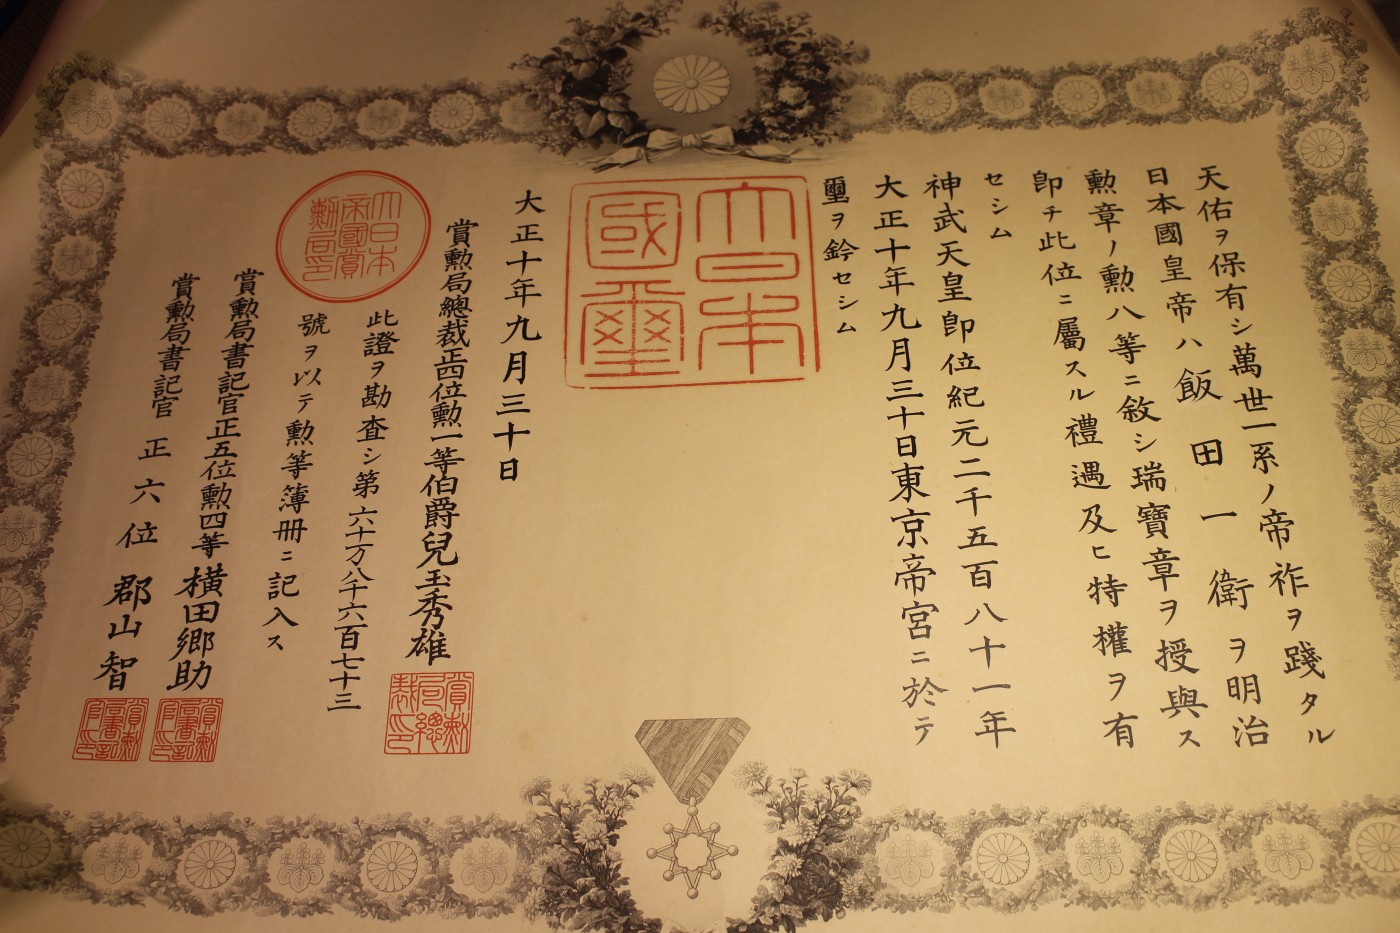 天佑ヲ保有シ萬世一系ノ帝祚ヲ踐タル
日本國皇帝ハ飯田一衛ヲ明治
勲章ノ勲八等ニ敘シ瑞寶章ヲ授與ス
卽チ此位ニ屬スル禮遇及ヒ特權ヲ有
セシム
神武天皇卽位紀元二千五百八十一年
大正十年九月三十日東京帝宮ニ於テ
璽ヲ鈐セシム
大日本
國璽
大正十年九月三十日
賞勲局總裁正四位勲一等伯爵兒玉秀雄
賞勲
局總
裁印
大日本
帝國賞
勲局印
此證ヲ勘査シ第六十万八千六百七十三
號ヲ以テ勲等簿冊ニ記入ス
賞勲局書記官正五位勲四等橫田郷助
賞勲
局書記
官印
賞勲局書記官正六位郡山智
賞勲
局書記
官印